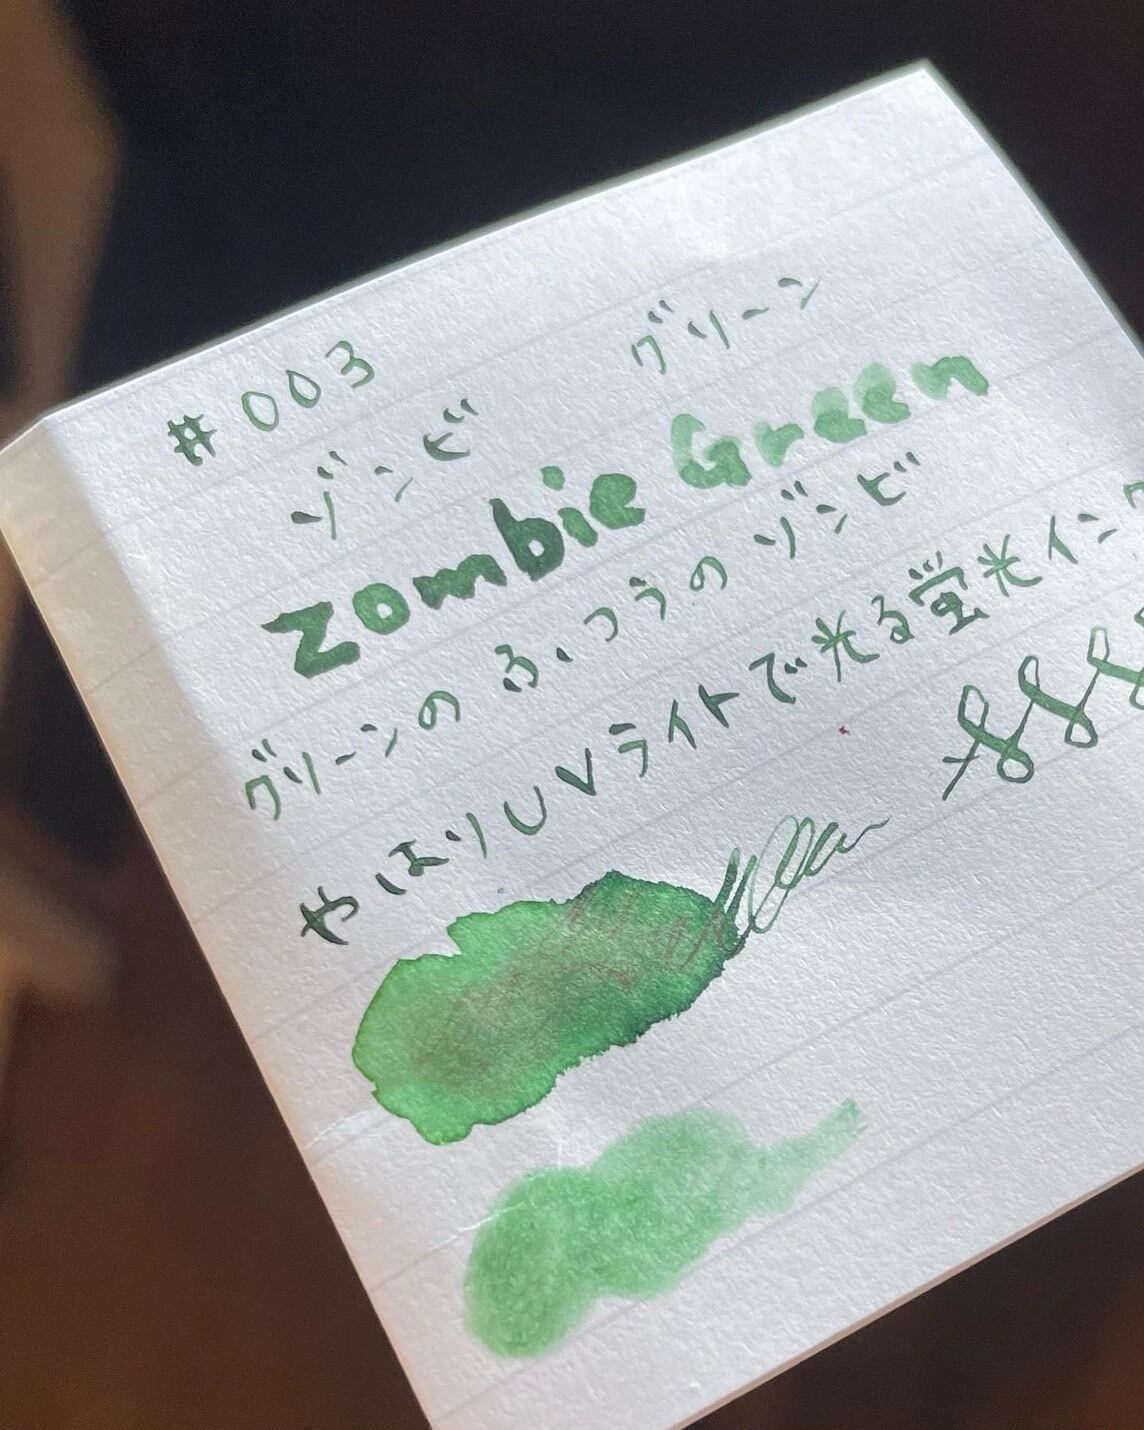 #003
ゾンビ グリーン
Zombie Green
グリーンの ふつうの ゾンビ
やはりUVライトで光る蛍光インク